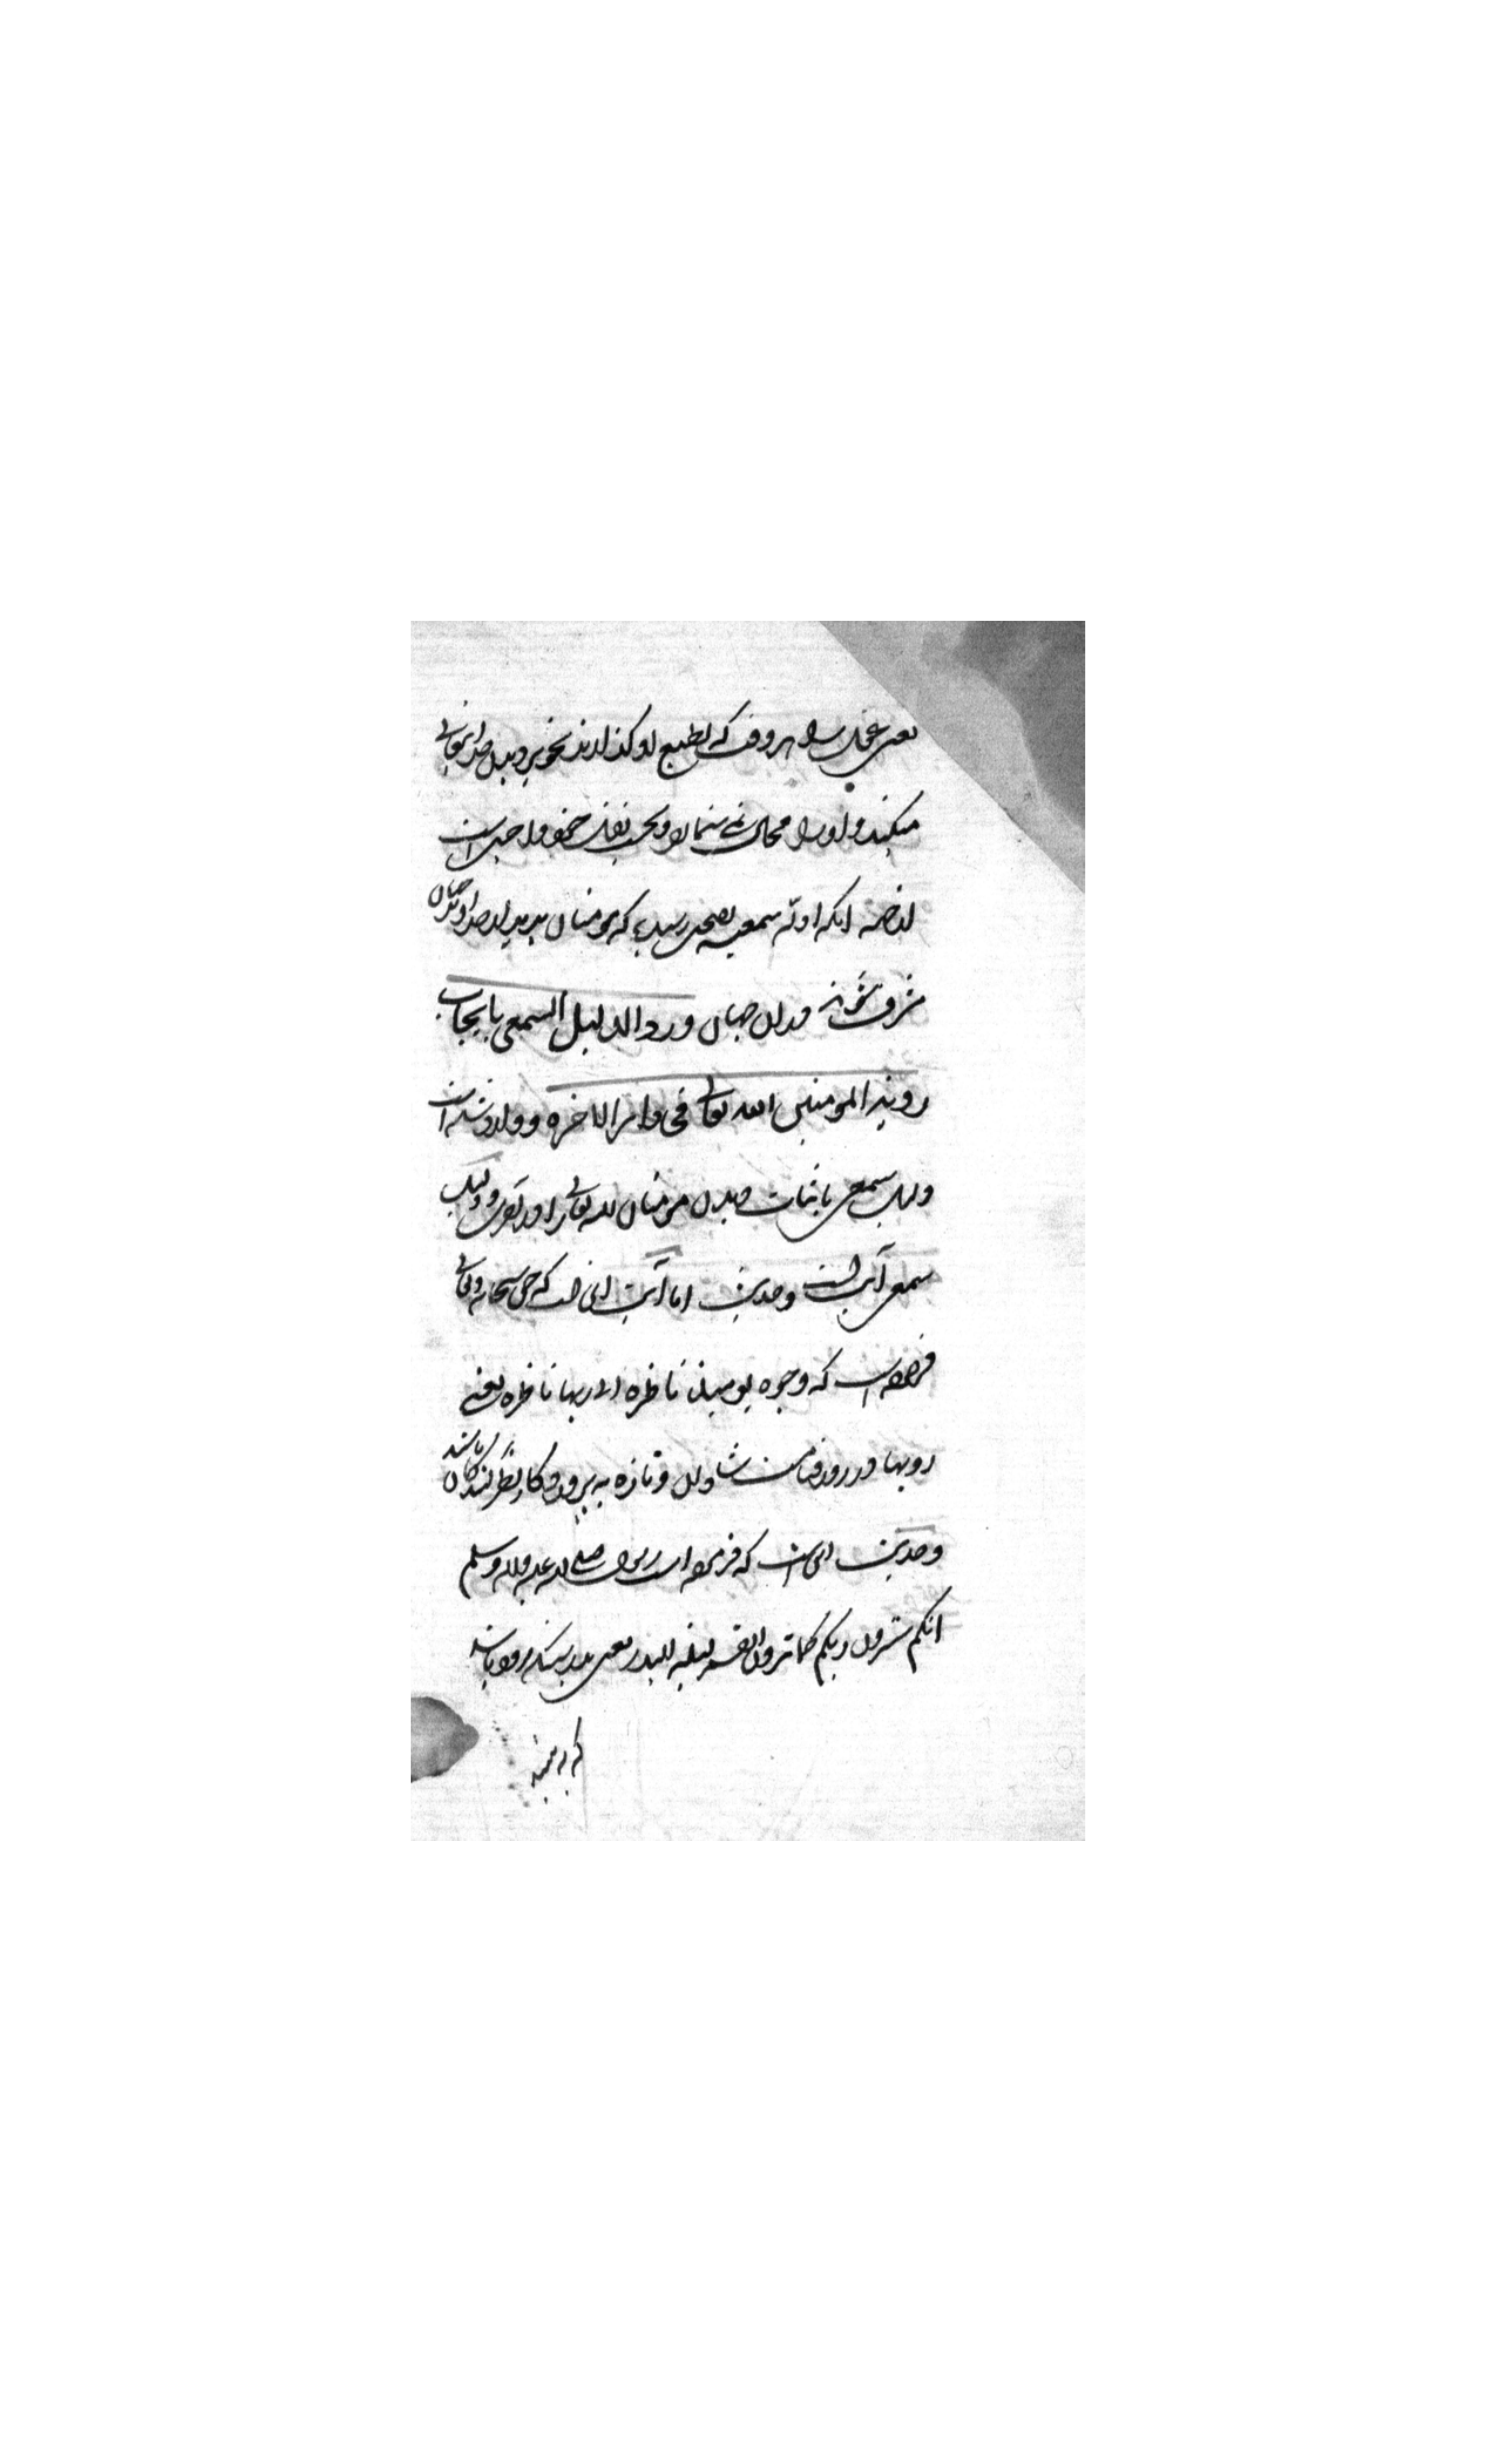 یعنی عقل را هر وقت که بطبع او گذارند تجویز دیدن خدا تعالی
میکند و او را محال نمی شمارد و بحسب نقل خود واجب است
از جهة انکه ادله سمعیه بصحت رسیده که مومنان بدیدار خداوند جهان
مشرف شوند در ان جهان ورد الدلیل السمعی بایجاب
رویة المومنین الله تعالی فی دار الاخره و وارد شده است
دلیل سمعی باثبات دیدن مومنان الله تعالی را در و دلیل
سمعی آیت است و حدیث اما آیت این است که حق سبحانه و تعالی
فرموده است که وجوه یومیذ ناظره الی ربها ناظره یعنی
رویها در روز قیامت شادان و تازه به پروردکار نظر کنندکان باشند
و حدیث این است که فرموده است رسول صلی الله علیه و اله وسلم
انکم سترون ربکم کما ترون القمر لیلة البدر یعنی بدرستیکه زود باشد
که به بینید